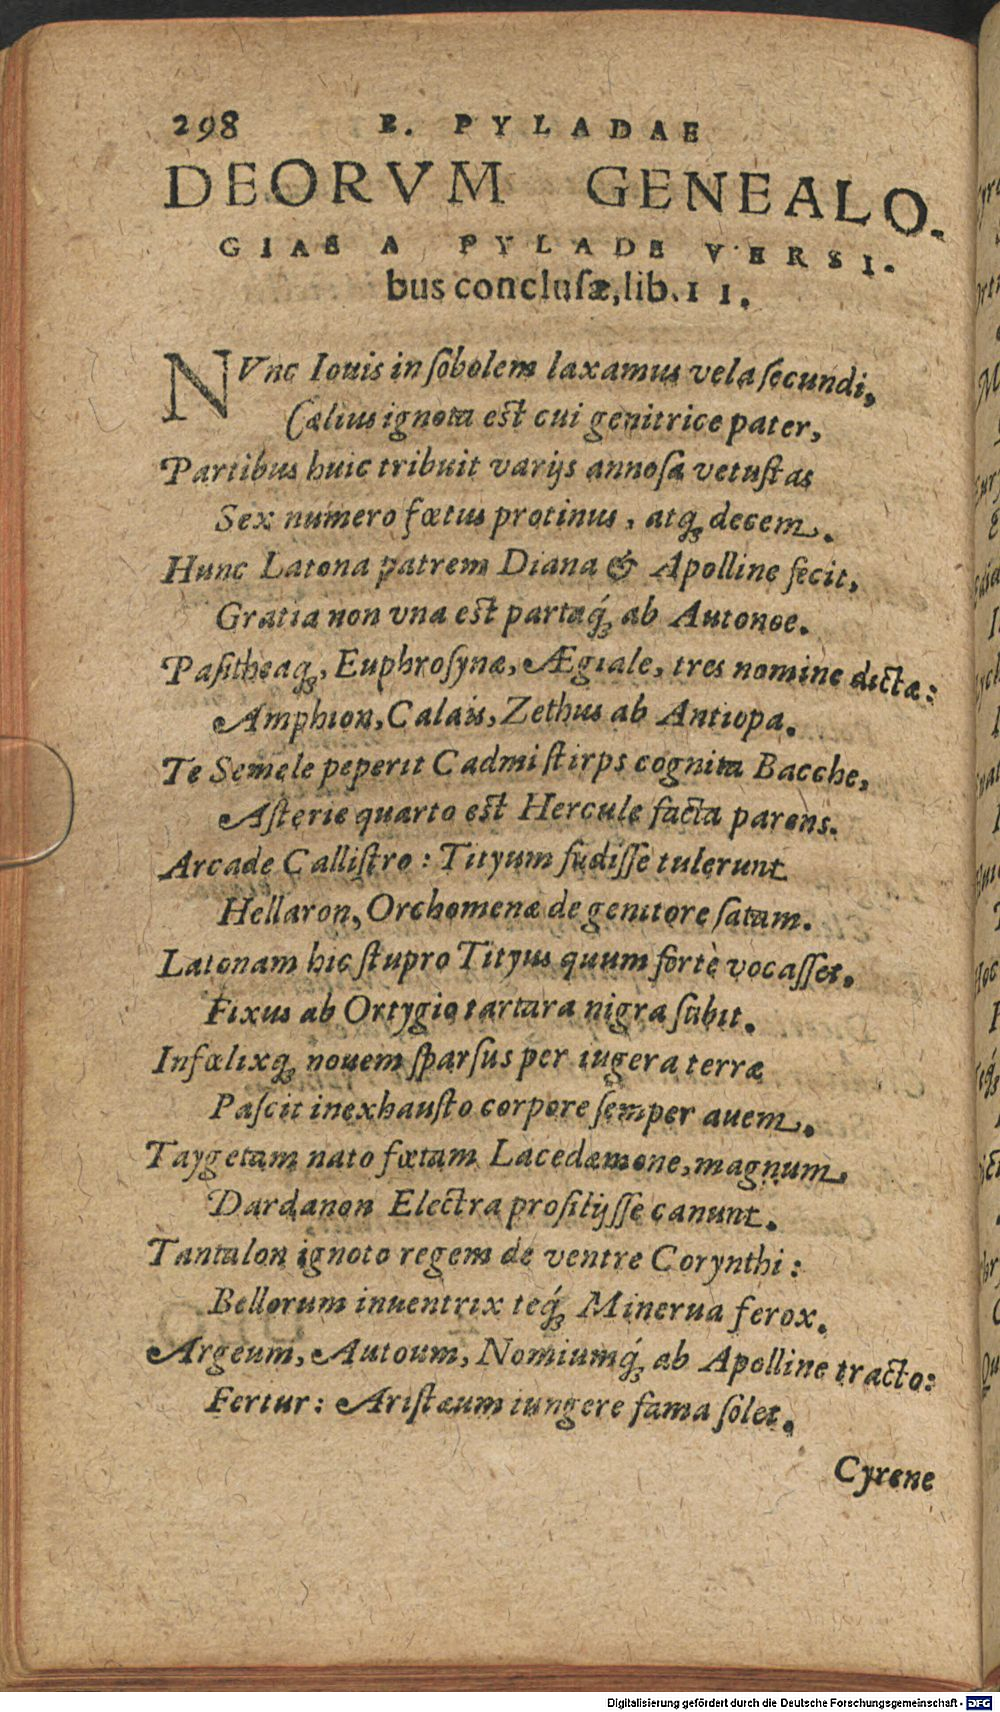 298 B. PYLADAE
DEORVM GENEALO-
GIAE A PYLADE VERSI-
bus conclusæ, lib. II.
NVnc Iouis in ſobolem laxamus vela ſecundi,
Cælius ignota est cui genitrice pater,
Partibus huic tribuit varijs annoſa vetuſtas
Sex numero fœtus protinus, atq; decem.
Hunc Latona patrem Diana & Apolline fecit,
Gratia non vna est partaq́; ab Autonoe.
Paſitheaq;, Euphroſynæ, Ægiale, tres nomine dictæ:
Amphion, Calais, Zethus ab Antiopa.
Te Semele peperit Cadmi ſtirps cognita Bacche,
Aſterie quarto est Hercule facta parens.
Arcade Calliſtro: Tityum fudiſſe tulerunt
Hellaron, Orchomenæ de genitore ſatam.
Latonam hic ſtupro Tityus quum fortè vocaſſet,
Fixus ab Ortygio tartara nigra ſubit.
Infœlixq; nouem ſparſus per iugera terræ
Paſcit inexhauſto corpore ſemper auem.
Taygetam nato fœtam Lacedæmone, magnum
Dardanon Electra proſilijſſe canunt.
Tantalon ignoto regem de ventre Corynthi:
Bellorum inuentrix teq́; Minerua ferox.
Argeum, Autoum, Nomiumq́; ab Apolline tracto:
Fertur: Ariſtæum iungere fama ſolet.
Cyrene
Digitalisierung gefördert durch die Deutsche Forschungsgemeinschaft - DFG